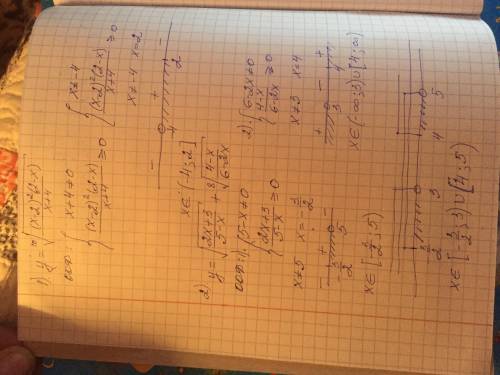 1) y = √((x-2)²(2-x)/(x+4))
ООФ: { x+4≠0
(x-2)²(2-x)/(x+4) ≥0
{ x≠-4
(x-2)²(2-x)/(x+4) ≥0
x≠-4 x=2
- + -
-4 2
x∈(-4;2]
2) y = √((2x+3)/(5-x)) + ⁸√((4-x)/(6-2x))
ООФ: 1) { 5-x≠0
(2x+3)/(5-x) ≥0
x≠5 x=-3/2
- + -
-3/2 5
x∈[-3/2;5)
2) { 6-2x≠0
(4-x)/(6-2x) ≥0
x≠3 x=4
+ - +
3 4
x∈(-∞;3)∪[4;∞)
-3/2 3 4 5
x∈[-3/2;3)∪[4;5)